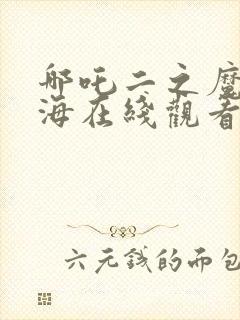 哪吒二之魔
海在綫觀看
六元钱的面包